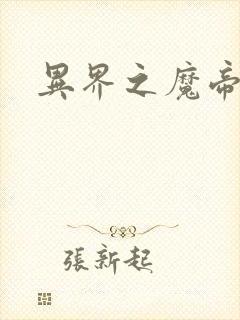 異界之魔帝
張新起